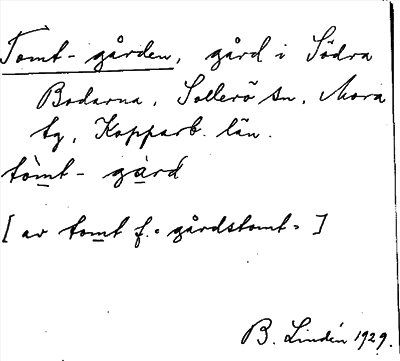 Tomt-gården, gård i Södra
Bodarna, Sollerö sn, Mora
tg, Kopparb. län.
tòmt- gárd
[ av tomt f. "gårdstomt" ]
B. Lindén 1929.